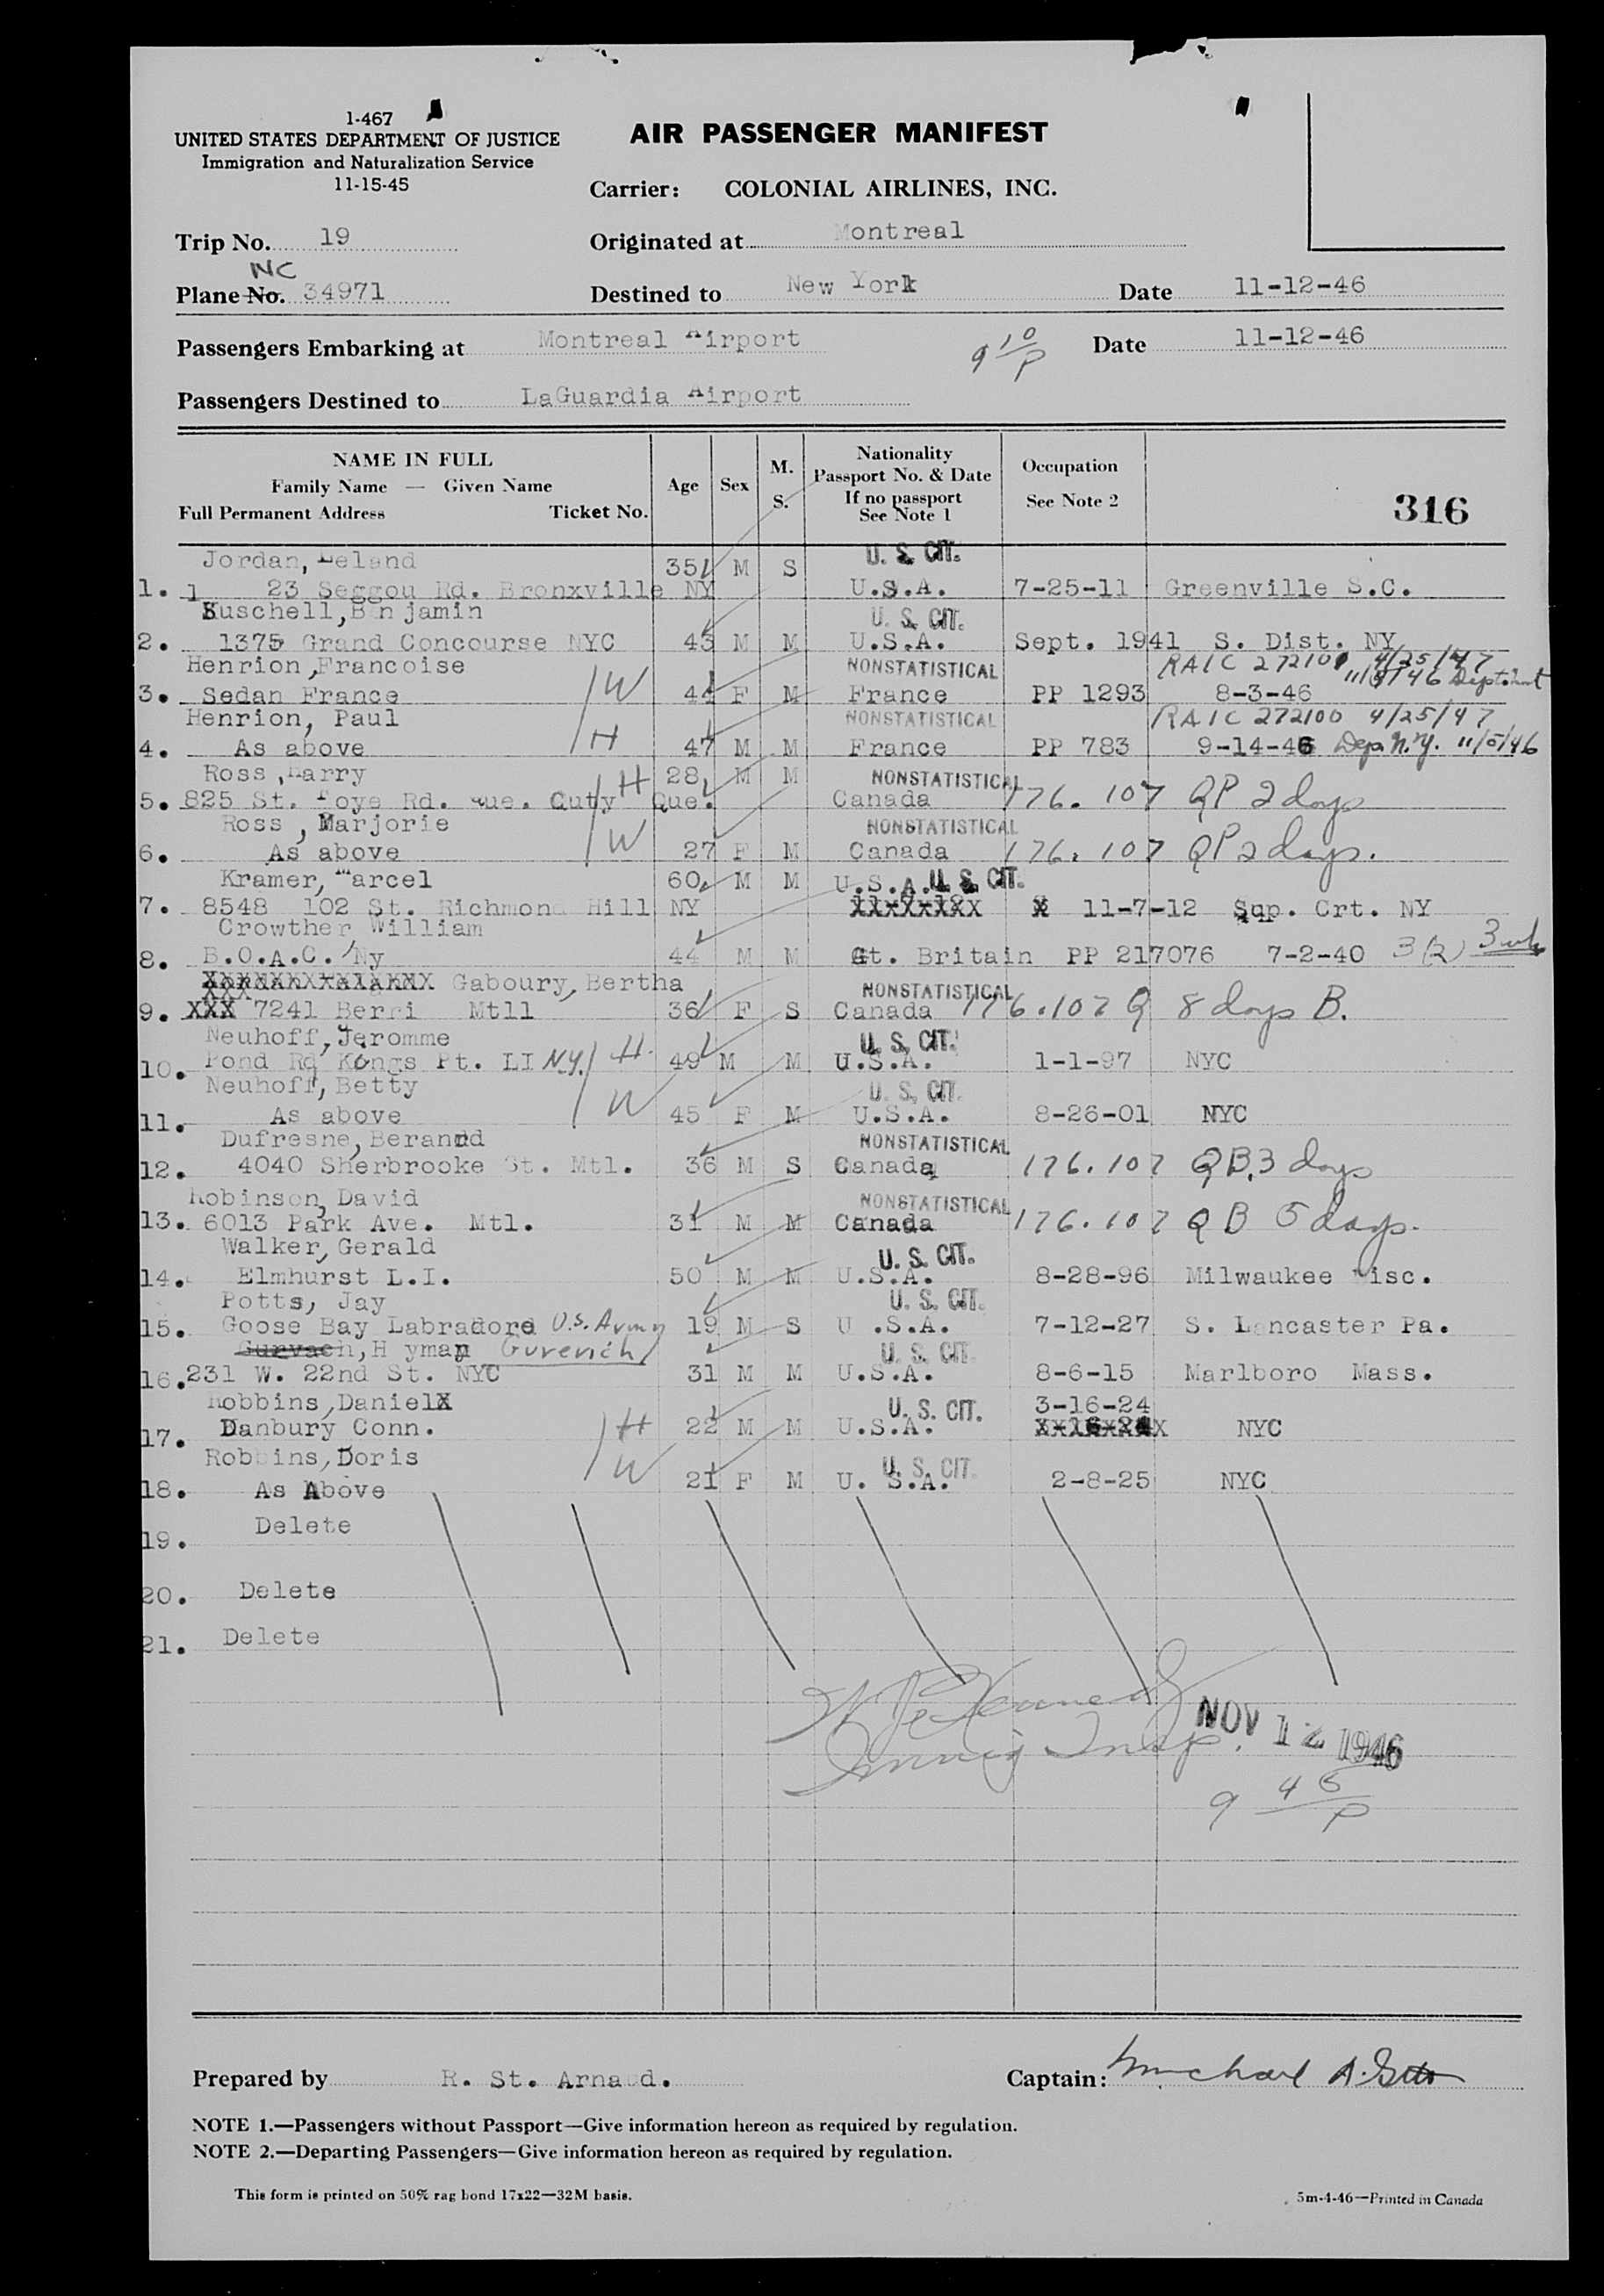 I-467
UNITED STATES DEPARTMENT OF JUSTICE
Immigration and Naturalization Service
11-15-45
AIR PASSENGER MANIFEST
Carrier: COLONIAL AIRLINES, INC.
Trip No. 19 Originated at Montreal
NC
Plane No. 34971 Destined to New York Date 11-12-46
Passengers Embarking at Montreal Airport 9 10/P Date 11-12-46
Passengers Destined to LaGuardia Airport
NAME IN FULL
Family Name — Given Name
Full Permanent Address Ticket No.
Age Sex M. S.
Nationality
Passport No. & Date
If no passport
See Note 1
Occupation
See Note 2
316
Jordan, Leland 35 M S U. S. CIT.
1. 1 23 Seggou Rd. Bronxville NY U.S.A. 7-25-11 Greenville S.C.
Kuschell, Benjamin U. S. CIT.
2. 1375 Grand Concourse NYC 43 M M U.S.A. Sept. 1941 S. Dist. NY
Henrion, Francoise NONSTATISTICAL RAIC 272101 4/25/47
3. Sedan France /W 44 F M France PP 1293 8-3-46 11/5/46
Henrion, Paul NONSTATISTICAL RAIC 272100 4/25/47
4. As above /H 47 M M France PP 783 9-14-46 Dep. N.Y. 11/5/46
Ross, Harry /H 28 M M NONSTATISTICAL
5. 825 St. Foye Rd. Que. Cuty Que. Canada 176.107 QP 2 days
Ross, Marjorie NONSTATISTICAL
6. As above /W 27 F M Canada 176.107 QP 2 days.
Kramer, Marcel 60 M M U.S.A. U. S. CIT.
7. 8548 102 St. Richmond Hill NY 11-7-12 Sup. Crt. NY
Crowther William
8. B.O.A.C. Ny 44 M M Gt. Britain PP 217076 7-2-40 3(2)
Gaboury, Bertha NONSTATISTICAL
9. XXX 7241 Berri Mtll 36 F S Canada 176.107 Q 8 days B.
Neuhoff, Jeromme U. S. CIT.
10. Pond Rd Kings Pt. LI N.Y. /H. 49 M M U.S.A. 1-1-97 NYC
Neuhoff, Betty U. S. CIT.
11. As above /W 45 F M U.S.A. 8-26-01 NYC
Dufresne, Berandd NONSTATISTICAL
12. 4040 Sherbrooke St. Mtl. 36 M S Canada 176.107 QB. 3 days
Robinson, David NONSTATISTICAL
13. 6013 Park Ave. Mtl. 31 M M Canada 176.107 QB 5 days.
Walker, Gerald U. S. CIT.
14. Elmhurst L.I. 50 M M U.S.A. 8-28-96 Milwaukee Wisc.
Potts, Jay U. S. CIT.
15. Goose Bay Labradore U.S. Army 19 M S U .S.A. 7-12-27 S. Lancaster Pa.
Gurvach, H yman Gurevich U. S. CIT.
16. 231 W. 22nd St. NYC 31 M M U.S.A. 8-6-15 Marlboro Mass.
Robbins, DanielX U. S. CIT. 3-16-24
17. Danbury Conn. /H 22 M M U.S.A. NYC
Robbins, Doris U. S. CIT.
18. As Above /W 21 F M U. S.A. 2-8-25 NYC
19. Delete
20. Delete
21. Delete
Kennedy
Immig Insp. NOV 12 1946
9 45/P
Prepared by R. St. Arnaud. Captain: Michael A.
NOTE 1.—Passengers without Passport—Give information hereon as required by regulation.
NOTE 2.—Departing Passengers—Give information hereon as required by regulation.
This form is printed on 50% rag bond 17x22—32M basis. 5m-4-46—Printed in Canada